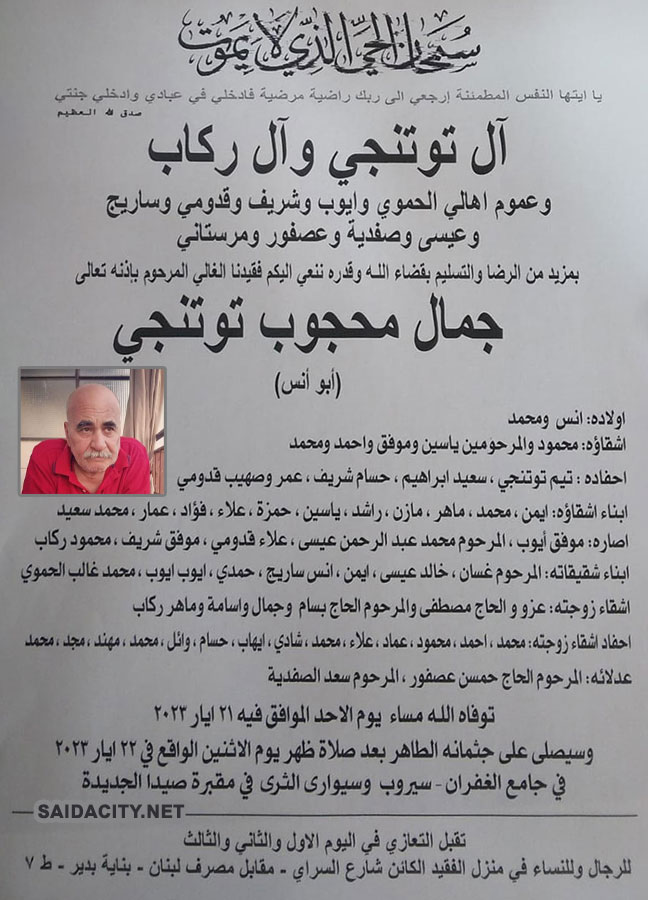 سبحان الحي الذي لا يموت
يا ايتها النفس المطمئنة إرجعي الى ربك راضية مرضية فادخلي في عبادي وادخلي جنتي
صدق لله العظيم
آل توتنجي وآل ركاب
وعموم اهالي الحموي وايوب وشريف وقدومي وساريج
وعيسى وصفدية وعصفور ومرستاني
بمزيد من الرضا والتسليم بقضاء الله وقدره ننعي اليكم فقيدنا الغالي المرحوم بإذنه تعالى
جمال محجوب توتنجي
(أبو أنس)
اولاده: انس ومحمد
اشقاؤه: محمود والمرحومين ياسين وموفق واحمد ومحمد
احفاده : تيم توتنجي ، سعيد ابراهيم ، حسام شريف ، عمر وصهيب قدومي
ابناء اشقاؤه: ايمن ، محمد ، ماهر ، مازن ، راشد ، ياسين ، حمزة ، علاء ، فؤاد ، عمار ، محمد سعيد
اصاره: موفق أيوب ، المرحوم محمد عبد الرحمن عيسى ، علاء قدومي ، موفق شريف ، محمود ركاب
ابناء شقيقاته: المرحوم غسان ، خالد عيسى ، ايمن ، انس ساريج ، حمدي ، ايوب ايوب ، محمد غالب الحموي
اشقاء زوجته: عزو و الحاج مصطفى والمرحوم الحاج بسام وجمال واسامة وماهر ركاب
احفاد اشقاء زوجته: محمد ، احمد ، محمود ، عماد ، علاء ، محمد ، شادي ، ايهاب ، حسام ، وائل ، محمد ، مهند ، مجد ، محمد
عدلائه: المرحوم الحاج حمسن عصفور ، المرحوم سعد الصفدية
توفاه الله مساء يوم الاحد الموافق فيه ٢١ ايار ٢٠٢٣
وسيصلى على جثمانه الطاهر بعد صلاة ظهر يوم الاثنين الواقع في ٢٢ ايار ٢٠٢٣
في جامع الغفران - سيروب وسيوارى الثرى في مقبرة صيدا الجديدة
SAIDACITY.NET
تقبل التعازي في اليوم الاول والثاني والثالث
للرجال وللنساء في منزل الفقيد الكائن شارع السراي - مقابل مصرف لبنان - بناية بدير - ط ٧